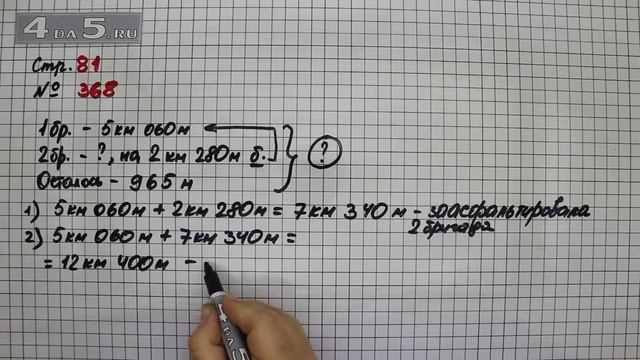 4 DA 5.RU
Стр. 81
№ 368
1 бр. - 5 км 060 м
2 бр. - ?, на 2 км 280 м б.
?
Осталось - 965 м
1) 5 км 060 м + 2 км 280 м = 7 км 340 м - заасфальтировала
2 бригада
2) 5 км 060 м + 7 км 340 м =
= 12 км 400 м -
4 DA 5